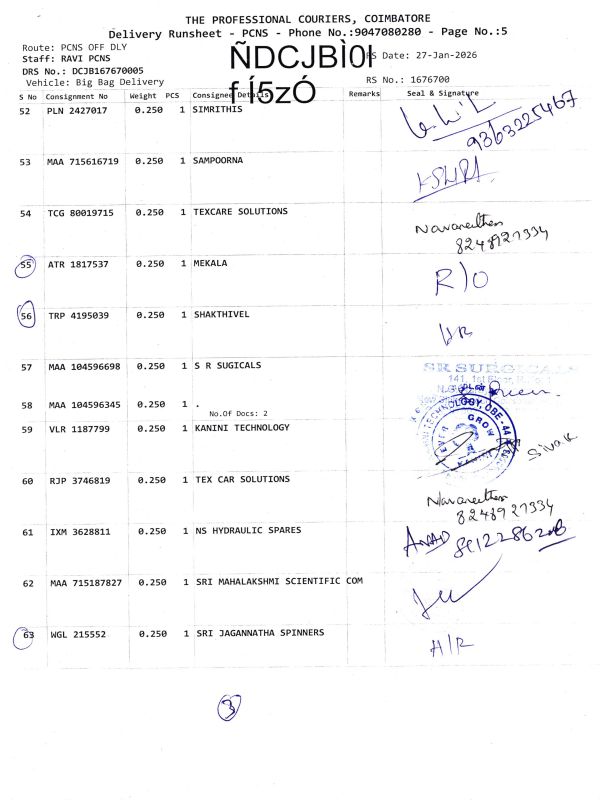 THE PROFESSIONAL COURIERS, COIMBATORE
Delivery Runsheet - PCNS - Phone No.:9047080280 - Page No.:5
Route: PCNS OFF DLY
Staff: RAVI PCNS
ÑDCJBÌ0I
RS Date: 27-Jan-2026
DRS No.: DCJB167670005
f Í5zÓ
Vehicle: Big Bag Delivery
RS No.: 1676700
S No Consignment No Weight PCS Consignee Details Remarks Seal & Signature
52 PLN 2427017 0.250 1 SIMRITHIS
9363225467
53 MAA 715616719 0.250 1 SAMPOORNA
54 TCG 80019715 0.250 1 TEXCARE SOLUTIONS
8248921334
55 ATR 1817537 0.250 1 MEKALA
R)O
56 TRP 4195039 0.250 1 SHAKTHIVEL
57 MAA 104596698 0.250 1 S R SUGICALS
SR SURGICALS
58 MAA 104596345 0.250 1 .
No.Of Docs: 2
59 VLR 1187799 0.250 1 KANINI TECHNOLOGY
TECHNOLOGY, CBE - 44
GROW
Sivak
60 RJP 3746819 0.250 1 TEX CAR SOLUTIONS
8248921334
61 IXM 3628811 0.250 1 NS HYDRAULIC SPARES
62 MAA 715187827 0.250 1 SRI MAHALAKSHMI SCIENTIFIC COM
63 WGL 215552 0.250 1 SRI JAGANNATHA SPINNERS
A/R
3